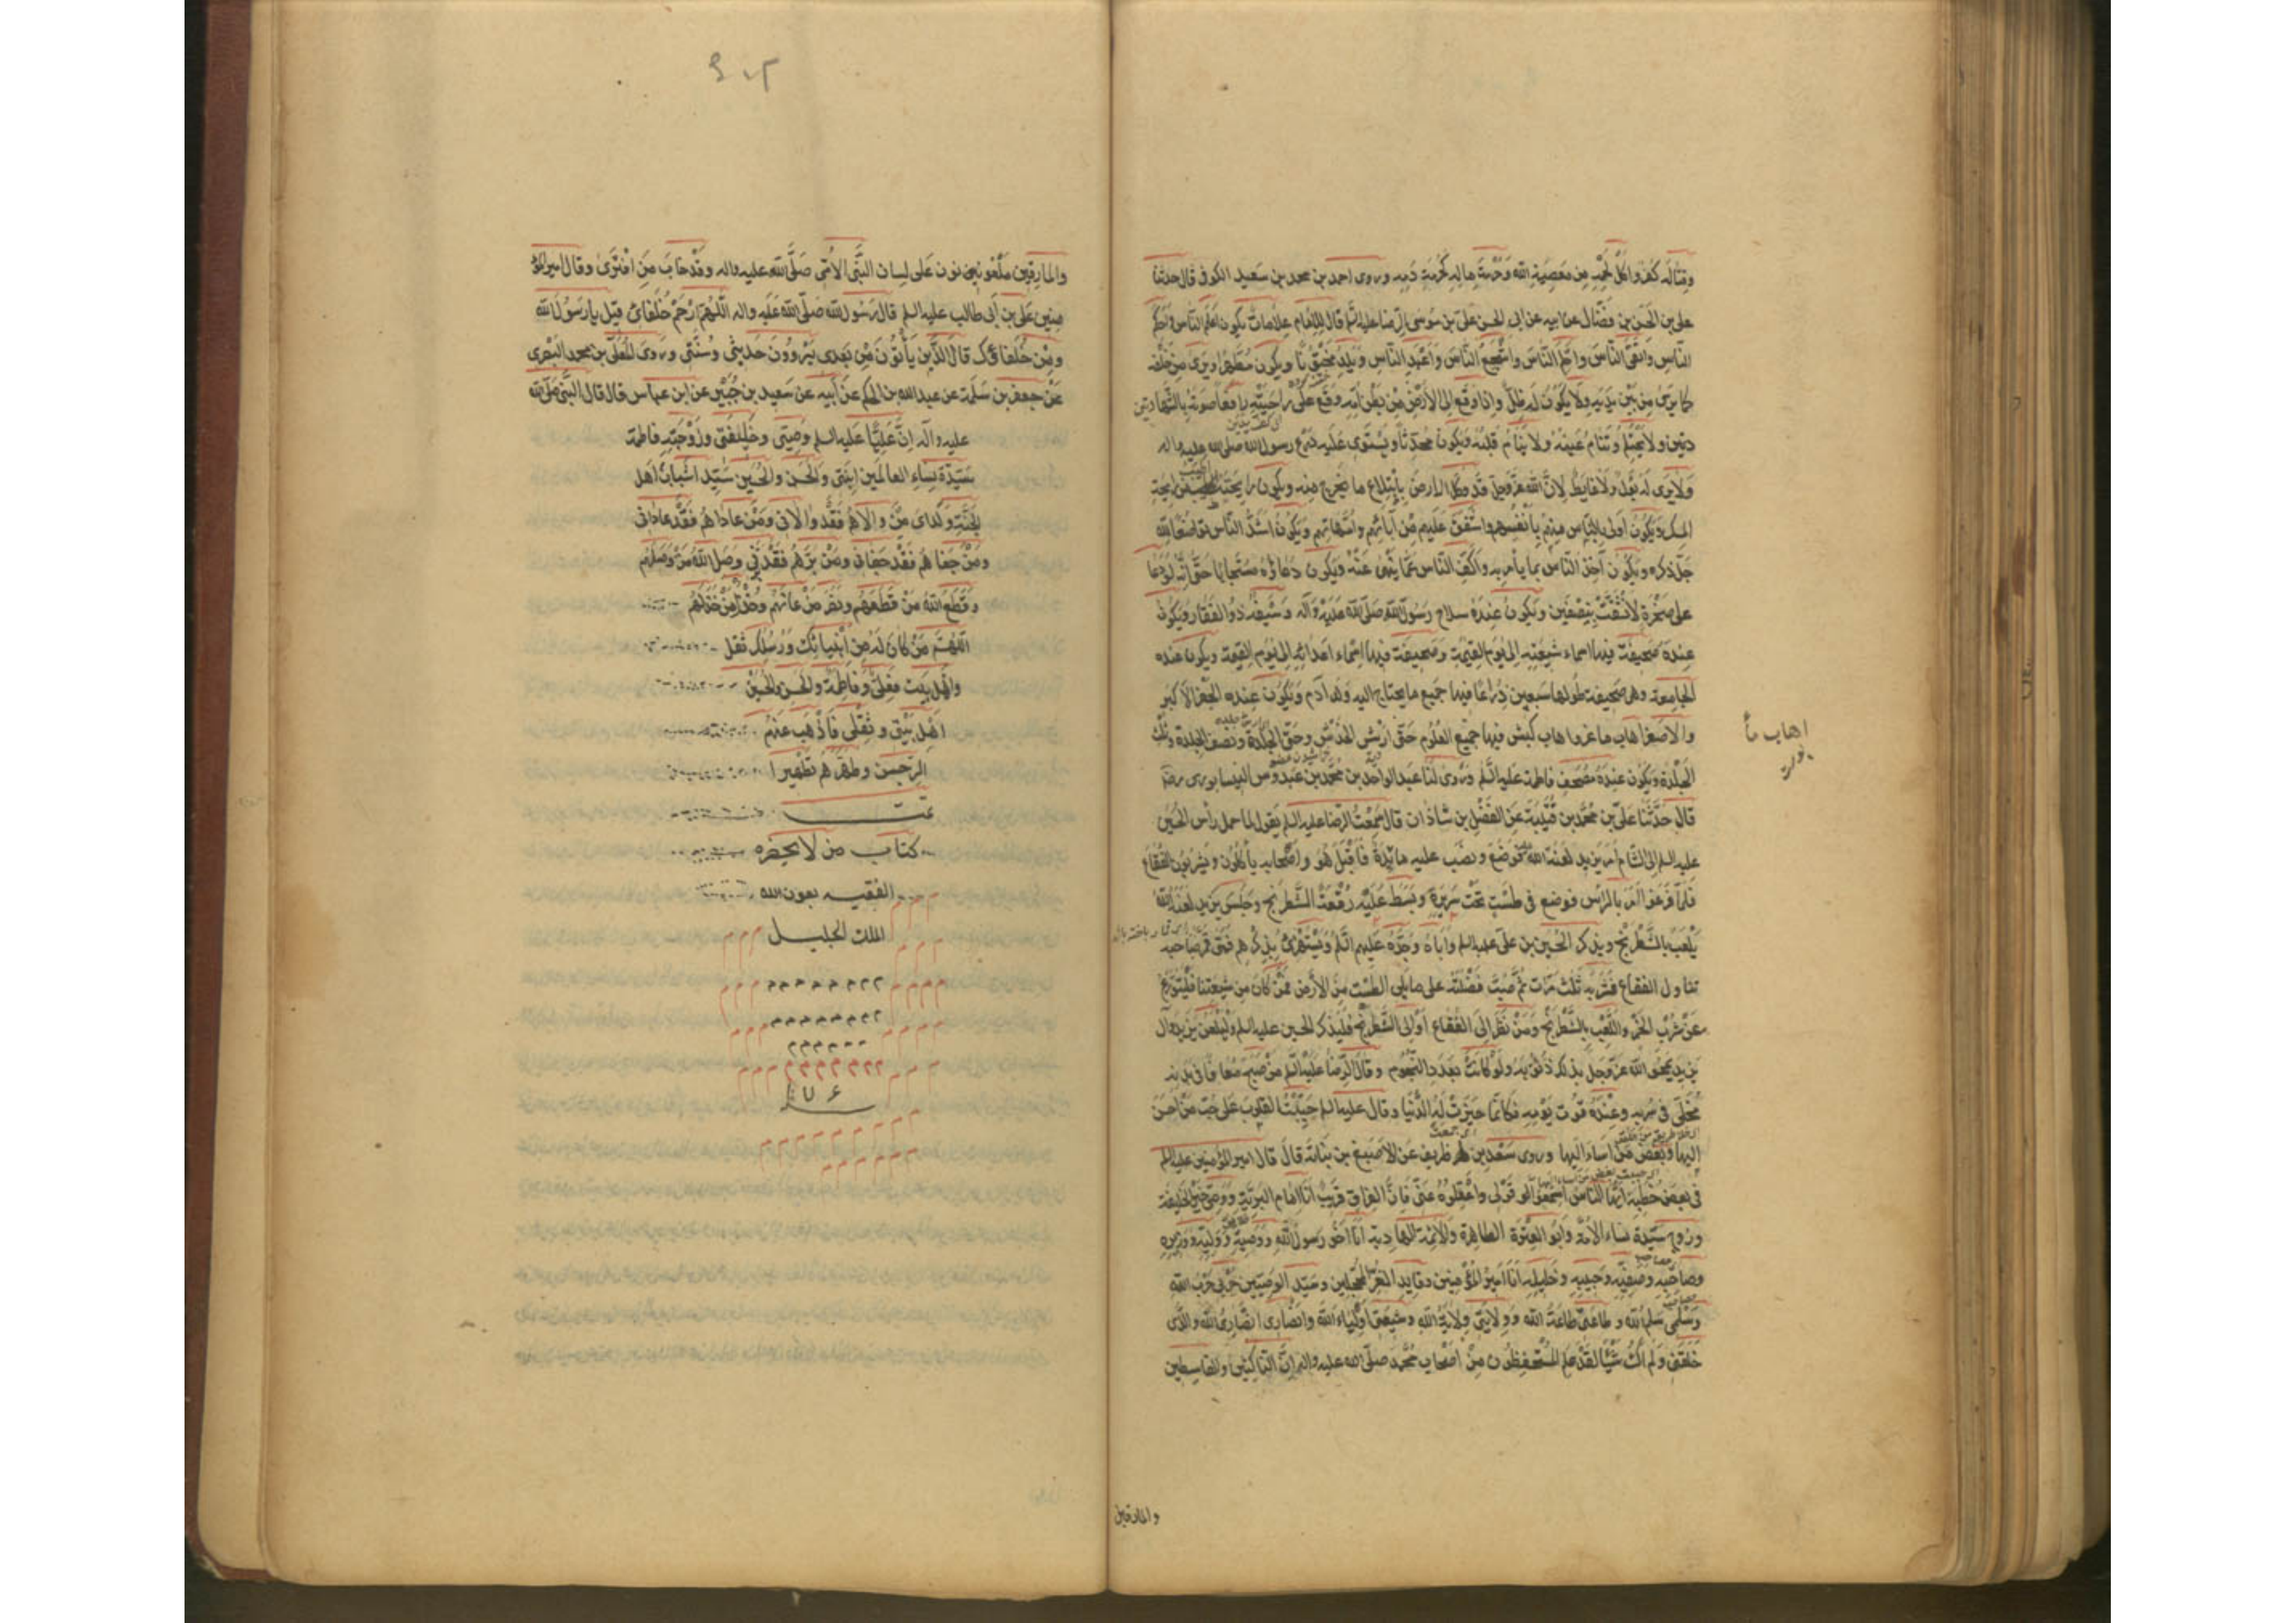 وقتاله كفر واكل لحمه من معصية الله وحرمة ماله كحرمة دمه وروى احمد بن محمد بن سعيد الكوفى قال حدثنا
على بن الحسن بن فضال عن ابيه عن ابى الحسن على بن موسى الرضا عليه السلام قال للامام علامات يكون اعلم الناس واحكم
الناس واتقى الناس واحلم الناس واشجع الناس واعبد الناس ويلد مختونا ويكون مطهرا ويرى من خلفه
كما يرى من بين يديه ولا يكون له ظل واذا وقع الى الارض من بطن امه وقع على راحتيه رافعا صوته بالشهادتين
ولا يحتلم وتنام عينه ولا ينام قلبه ويكون محدثا ويستوى عليه درع رسول الله صلى الله عليه واله
ولا يرى له بول ولا غايط لان الله عز وجل قد وكل الارض بابتلاع ما يخرج منه ويكون رايحته اطيب من رايحة
المسك ويكون اولى بالناس منهم بانفسهم واشفق عليهم من آبائهم وامهاتهم ويكون اشد الناس تواضعا لله
جل ذكره ويكون آخذ الناس بما يأمر به واكف الناس عما ينهى عنه ويكون دعاؤه مستجابا حتى انه لو دعا
على صخرة لانشقت بنصفين ويكون عنده سلاح رسول الله صلى الله عليه وآله وسيفه ذو الفقار ويكون
عنده صحيفة فيها اسماء شيعته الى يوم القيمة وصحيفة فيها اسماء اعدائه الى يوم القيمة ويكون عنده
الجامعة وهى صحيفة طولها سبعين ذراعا فيها جميع ما يحتاج اليه ولد آدم ويكون عنده الجفر الاكبر
والاصغر اهاب ماعز واهاب كبش فيها جميع العلوم حتى ارش الخدش وحتى الجلدة ونصف الجلدة وثلث
الجلدة ويكون عنده مصحف فاطمة عليها السلم وروى لنا عبد الواحد بن محمد بن عبدوس النيسابورى رضه
قال حدثنا على بن محمد بن قتيبة عن الفضل بن شاذان قال سمعت الرضا عليه السلم يقول لما حمل رأس الحسين
عليه السلم الى الشام امر يزيد لعنه الله فوضع ونصب عليه مائدة فاقبل هو واصحابه يأكلون ويشربون الفقاع
فلما فرغوا امر بالرأس فوضع فى طست تحت سريره وبسط عليه رقعة الشطرنج وجلس يزيد لعنه الله
يلعب بالشطرنج ويذكر الحسين بن على عليه السلم واباه وجده عليهم السلم ويستهزئ بذكرهم فمتى قمر صاحبه
تناول الفقاع فشربه ثلث مرات ثم صب فضلته على ما يلى الطست من الارض فمن كان من شيعتنا فليتورع
عن شرب الخمر واللعب بالشطرنج ومن نظر الى الفقاع او الى الشطرنج فليذكر الحسين عليه السلم وليلعن يزيد وآل
يزيد يمحو الله عز وجل بذلك ذنوبه ولو كانت بعدد النجوم وقال الرضا عليه السلم من اصبح معافا فى بدنه
مخلى فى سربه وعنده قوت يومه فكانما حيزت له الدنيا وقال عليه السلم جبلت القلوب على حب من احسن
اليها وبغض من اساء اليها وروى سعد بن طريف عن الاصبغ بن نباتة قال قال امير المؤمنين عليه السلم
فى بعض خطبه ايها الناس اسمعوا قولى واعقلوه عنى فان الفراق قريب انا امام البرية ووصى خير الخليقة
وزوج سيدة نساء الامة وابو العترة الطاهرة والائمة الهادية انا اخو رسول الله ووصيه ووليه ووزيره
وصاحبه وصفيه وحبيبه وخليله انا امير المؤمنين وقايد الغر المحجلين وسيد الوصيين حربى حرب الله
وسلمى سلم الله وطاعتى طاعة الله وولايتى ولاية الله وشيعتى اولياء الله وانصارى انصار الله والذى
خلقنى ولم اك شيئا لقد علم المستحفظون من اصحاب محمد صلى الله عليه واله ان الناكثين والقاسطين
والمارقين
والمارقين ملعونون على لسان النبى الامى صلى الله عليه واله وقد خاب من افترى وقال امير المؤ
منين على بن ابى طالب عليه السلم قال رسول الله صلى الله عليه واله اللهم ارحم خلفائى قيل يا رسول الله
ومن خلفاؤك قال الذين يأتون من بعدى يروون حديثى وسنتى وروى المعلى بن محمد البصرى
عن جعفر بن سلمة عن عبد الله بن الحكم عن ابيه عن سعيد بن جبير عن ابن عباس قال قال النبى صلى الله
عليه وآله ان عليا عليه السلم وصيى وخليفتى وزوجته فاطمة
سيدة نساء العالمين ابنتى والحسن والحسين سيدا شباب اهل
الجنة ولداى من والاهم فقد والانى ومن عاداهم فقد عادانى
ومن جفاهم فقد جفانى ومن برهم فقد برنى وصل الله من وصلهم
وقطع الله من قطعهم ونصر من اعانهم وخذل من خذلهم
اللهم من كان له من انبيائك ورسلك ثقل
واهل بيت فعلى وفاطمة والحسن والحسين
اهل بيتى وثقلى فاذهب عنهم
الرجس وطهرهم تطهيرا
تمت
كتاب من لا يحضره
الفقيه بعون الله
الملك الجليل